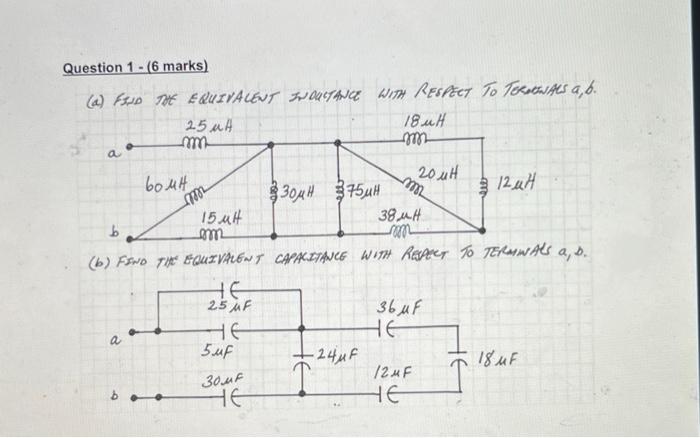 Question 1 - (6 marks)
(a) FIND THE EQUIVALENT INDUCTANCE WITH RESPECT TO TERMINALS a,b.
25 μH
18 μH
a
60 μH
30μH
75μH
20 μH
12μH
15 μH
38 μH
b
(b) FIND THE EQUIVALENT CAPACITANCE WITH RESPECT TO TERMINALS a, b.
25 μF
36 μF
a
5μF
24μF
18 μF
30μF
12μF
b